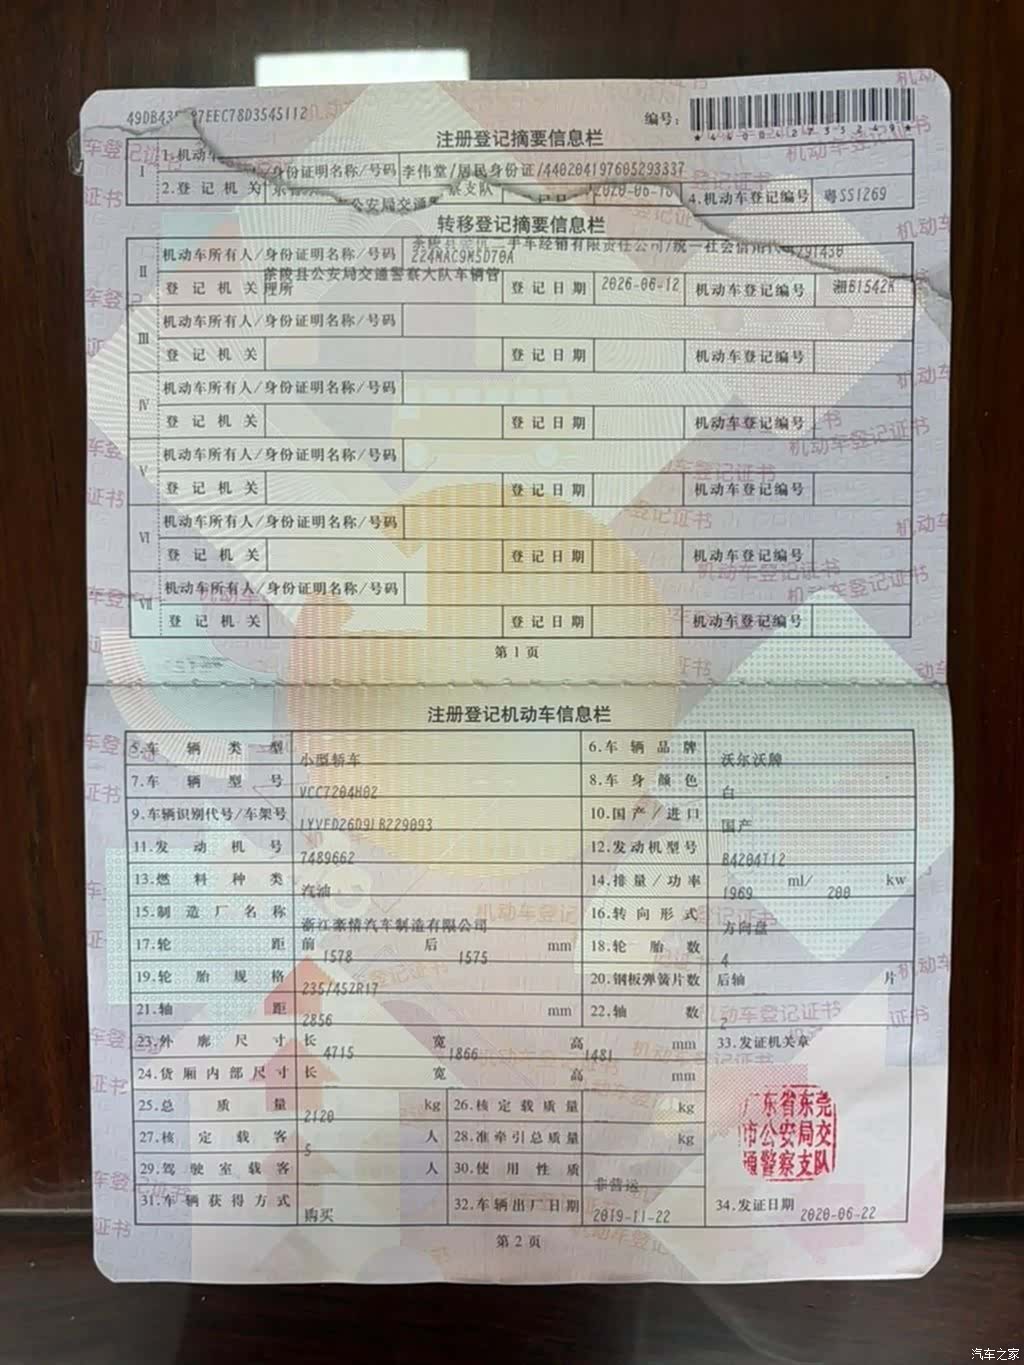 7EEC78D3545112
编号:
注册登记摘要信息栏
I 1.机动车 /身份证明名称/号码 李伟堂/居民身份证/440204197605293337
2.登记机关 察支队 4.机动车登记编号 粤SS1269
公安局交通
转移登记摘要信息栏
II 机动车所有人/身份证明名称/号码 二手车经销有限责任公司/统一社会信用代
224MAC9M5D70A
登记机关 茶陵县公安局交通警察大队车辆管理所 登记日期 2026-06-12 机动车登记编号 湘B1542K
III 机动车所有人/身份证明名称/号码
登记机关 登记日期 机动车登记编号
IV 机动车所有人/身份证明名称/号码
登记机关 登记日期 机动车登记编号
V 机动车所有人/身份证明名称/号码
登记机关 登记日期 机动车登记编号
VI 机动车所有人/身份证明名称/号码
登记机关 登记日期 机动车登记编号
VII 机动车所有人/身份证明名称/号码
登记机关 登记日期 机动车登记编号
第1页
注册登记机动车信息栏
5.车辆类型 小型轿车 6.车辆品牌 沃尔沃牌
7.车辆型号 VCC7204H02 8.车身颜色 白
9.车辆识别代号/车架号 10.国产/进口 国产
11.发动机号 7489662 12.发动机型号 B4204T12
13.燃料种类 汽油 14.排量/功率 1969 ml/ 200 kw
15.制造厂名称 浙江豪情汽车制造有限公司 16.转向形式 方向盘
17.轮距 前 1578 后 1575 mm 18.轮胎数 4
19.轮胎规格 235/45ZR17 20.钢板弹簧片数 后轴 片
21.轴距 2856 mm 22.轴数 2
23.外廓尺寸 长 4715 宽 1866 高 1481 mm 33.发证机关章
24.货厢内部尺寸 长 宽 高 mm
25.总质量 2120 kg 26.核定载质量 kg
27.核定载客 5 人 28.准牵引总质量 kg
29.驾驶室载客 人 30.使用性质 非营运
广东省东莞
市公安局交
通警察支队
31.车辆获得方式 购买 32.车辆出厂日期 2019-11-22 34.发证日期 2020-06-22
第2页
汽车之家